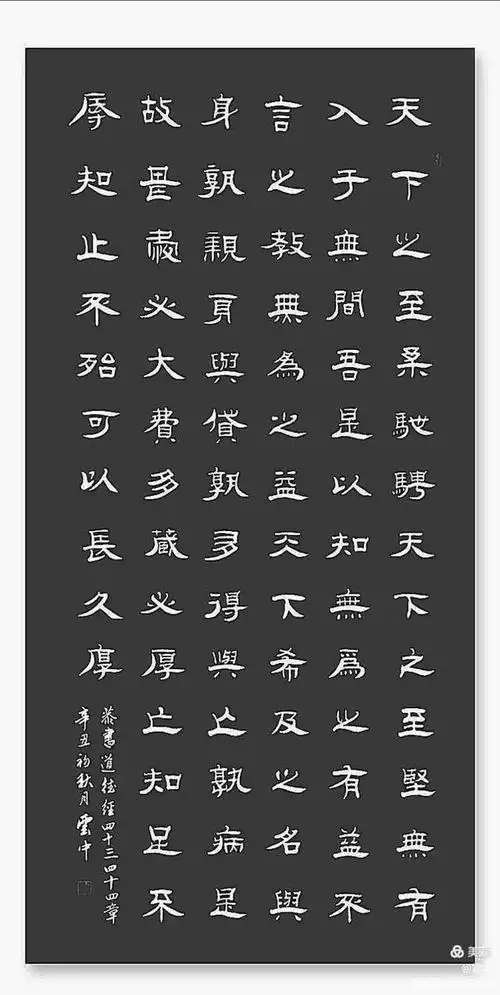 天下之至柔馳騁天下之至堅無有
入于無間吾是以知無爲之有益不
言之教無為之益天下希及之名與
身孰親身與貨孰多得與亡孰病是
故甚愛必大費多藏必厚亡知足不
辱知止不殆可以長久厚
恭書道德經四十三四十四章
辛丑初秋月雲中